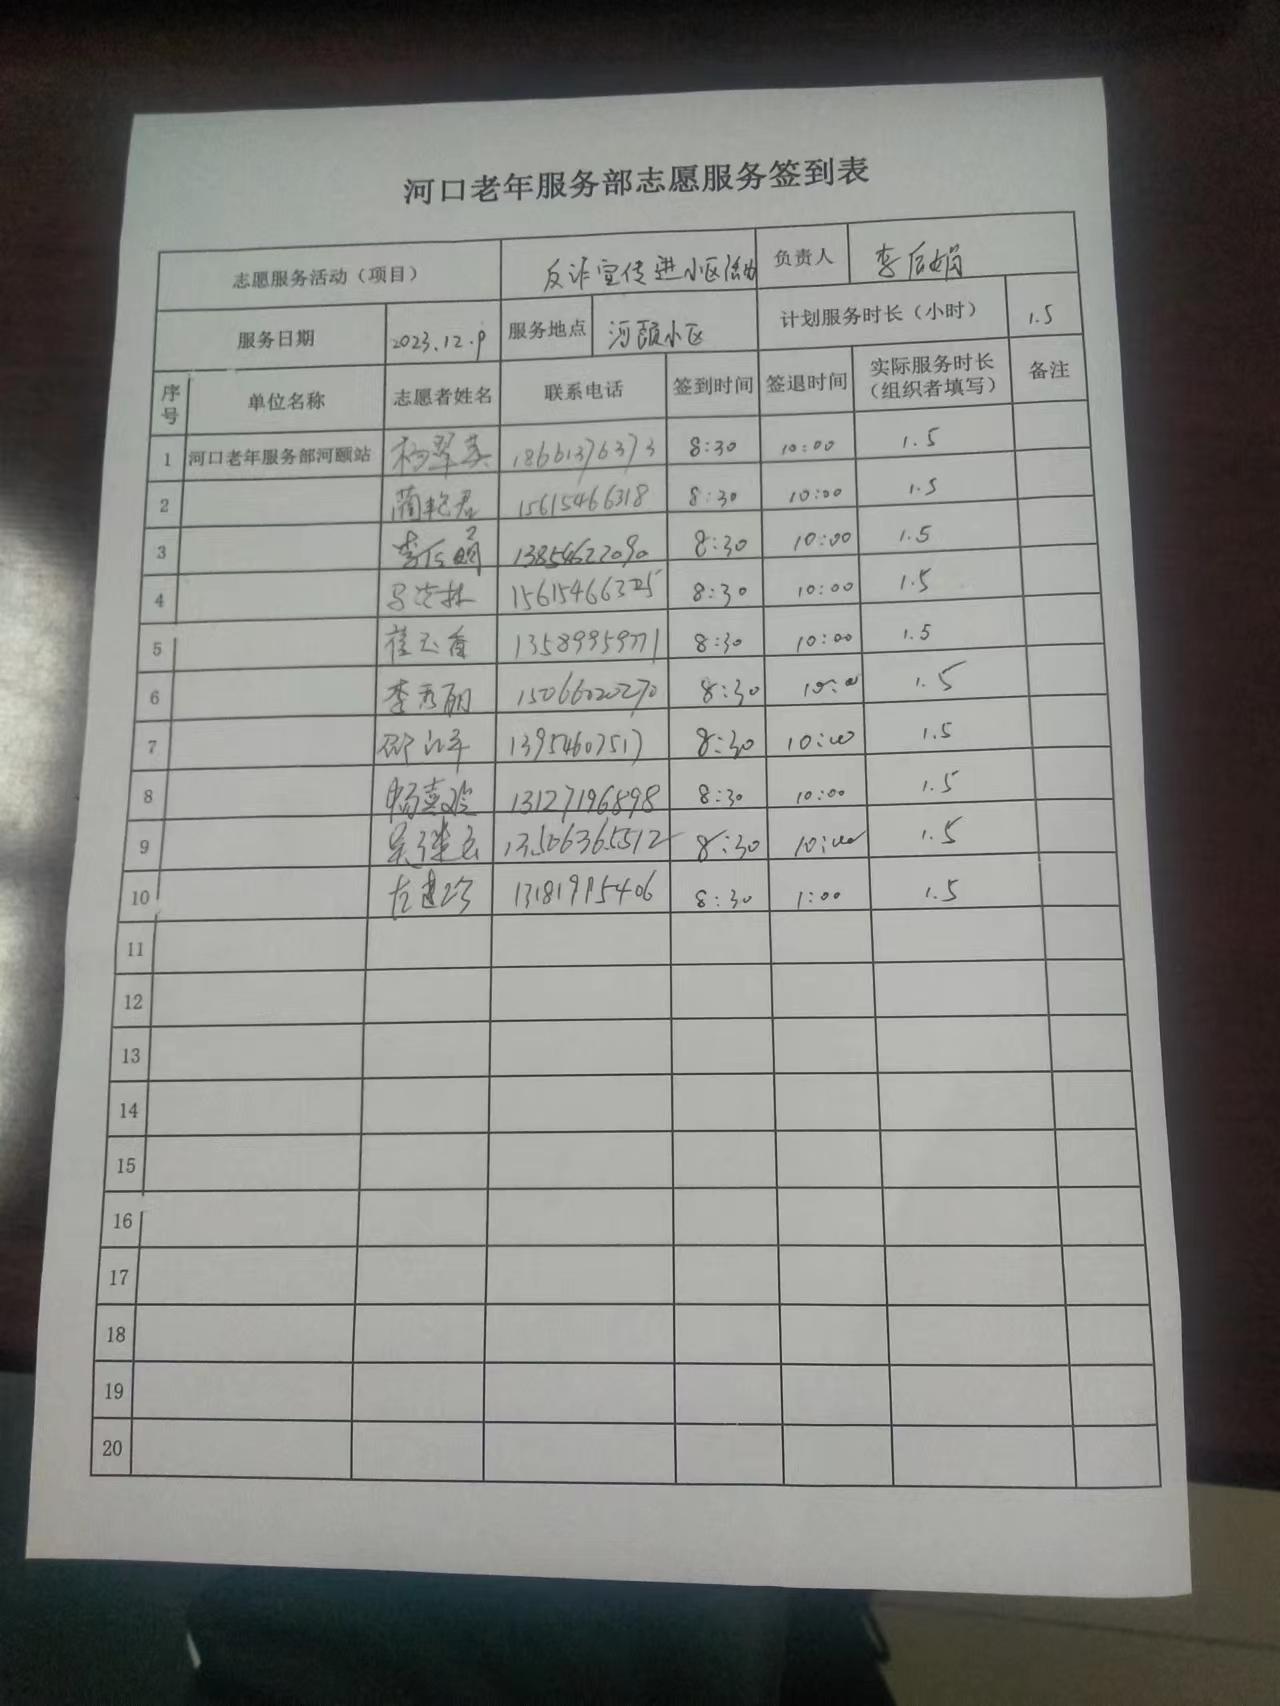 河口老年服务部志愿服务签到表
志愿服务活动（项目） 反诈宣传进小区活动 负责人 李后娟
服务日期 2023.12.9 服务地点 河颐小区 计划服务时长（小时） 1.5
序号 单位名称 志愿者姓名 联系电话 签到时间 签退时间 实际服务时长（组织者填写） 备注
1 河口老年服务部河颐站 杨翠英 18661376373 8:30 10:00 1.5
2 蔺艳君 15615466318 8:30 10:00 1.5
3 李后娟 13854622090 8:30 10:00 1.5
4 15615466325 8:30 10:00 1.5
5 崔玉香 13589959771 8:30 10:00 1.5
6 李秀丽 15066020270 8:30 10:00 1.5
7 13954607517 8:30 10:00 1.5
8 13127196898 8:30 10:00 1.5
9 13506365512 8:30 10:00 1.5
10 13181995406 8:30 1:00 1.5
11
12
13
14
15
16
17
18
19
20